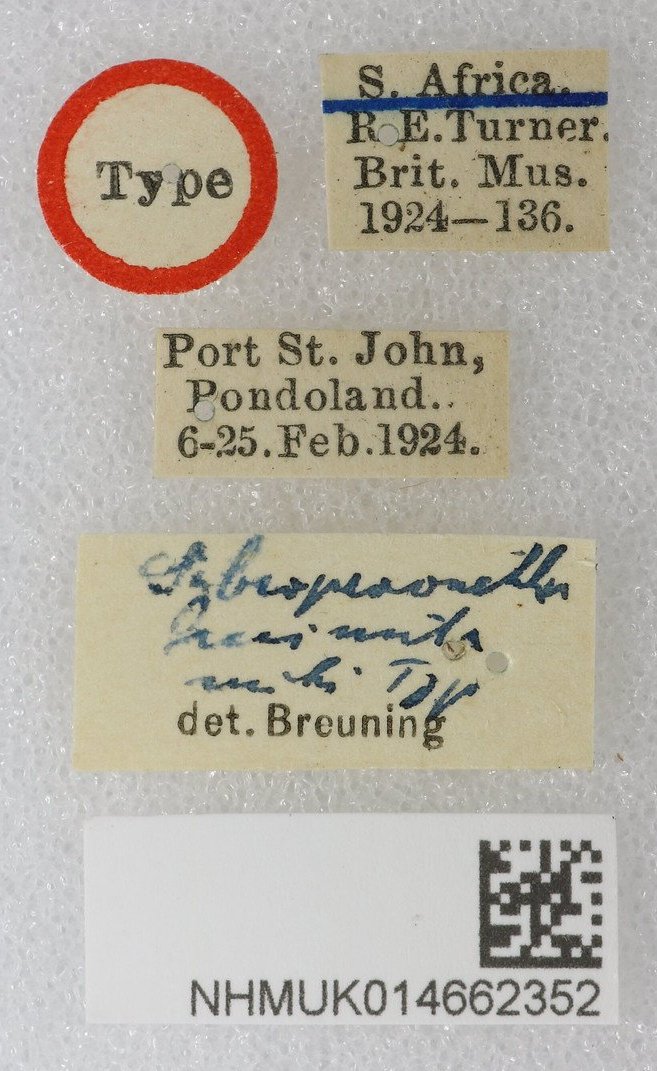 Type
S. Africa.
R.E.Turner.
Brit. Mus.
1924—136.
Port St. John,
Pondoland.
6-25.Feb.1924.
mihi Typ
det. Breuning
NHMUK014662352